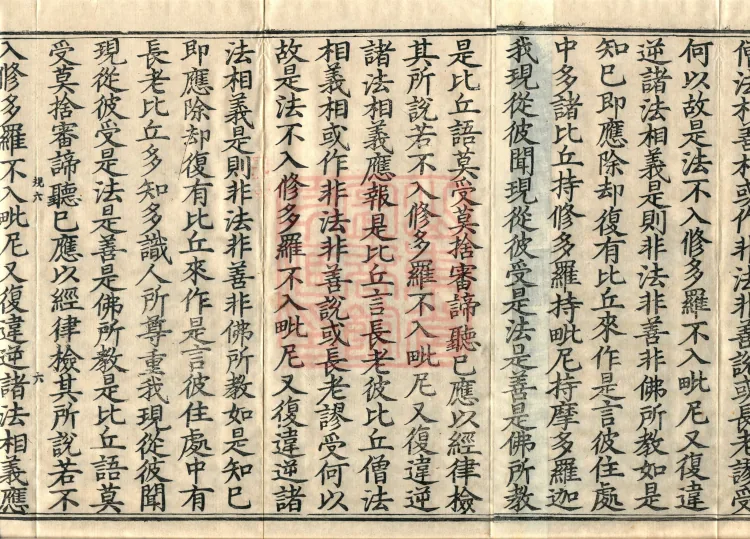 何以故是法不入修多羅不入毗尼又復違
逆諸法相義是則非法非善非佛所教如是
知已即應除却復有比丘來作是言彼住處
中多諸比丘持修多羅持毗尼持摩多羅迦
我現從彼聞現從彼受是法是善是佛所教
是比丘語莫受莫捨審諦聽已應以經律檢
其所說若不入修多羅不入毗尼又復違逆
諸法相義應報是比丘言長老彼比丘僧法
相義相或作非法非善說或長老謬受何以
故是法不入修多羅不入毗尼又復違逆諸
法相義是則非法非善非佛所教如是知已
即應除却復有比丘來作是言彼住處中有
長老比丘多知多識人所尊重我現從彼聞
現從彼受是法是善是佛所教是比丘語莫
受莫捨審諦聽已應以經律檢其所說若不
規六 六
入修多羅不入毗尼又復違逆諸法相義應